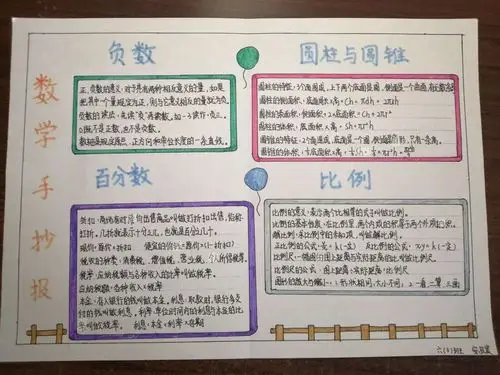 数学手抄报
负数
正、负数的意义：对于具有两种相反意义的量，如是
把其中一个量规定为正，则与它意义相反的量就为负。
负数的读法：先读"负"再读数，如-3读作：负三。
0既不是正数，也不是负数。
数轴是规定原点、正方向和单位长度的一条直线。
圆柱与圆锥
圆柱的特征：3个面围成，上下两个底面是圆，侧面是一个曲面，有无数条高
圆柱的侧面积：底面周长×高=Ch=πdh=2πrh
圆柱的表面积：侧面积+2×底面积=Ch+2πr²
圆柱的体积：底面积×高=Sh=πr²h
圆锥的特征：2个面围成，底面是一个圆，侧面是扇形，只有一条高。
百分数
折扣：商场有时降价出售商品叫做打折扣出售，俗称
打折。几折就表示十分之几，也就是百分之几十。
现价=原价×折扣 便宜的价钱=原价×(1-折扣)
税收的种类：消费税、增值税、营业税、个人所得税等。
税率：应纳税额与各种收入的比率叫做税率。
应纳税额：各种收入×税率
本金：存入银行的钱叫做本金。利息：取款时，银行多支
付的钱叫做利息。利率：单位时间内的利息与本金的比
率叫做税率。 利息=本金×利率×存期
比例
比例的意义：表示两个比相等的式子叫做比例。
比例的基本性质：在比例里，两个内项的积等于两个外项的积。
解比例：求比例中的未知项，叫做解比例。
反比例的公式：xy=k(一定)
比例尺：一幅图的图上距离与实际距离的比叫做比例尺
比例尺的公式：图上距离：实际距离=比例尺
图形的放大与缩小：1.形状相同，大小不同；2.一看二算三画